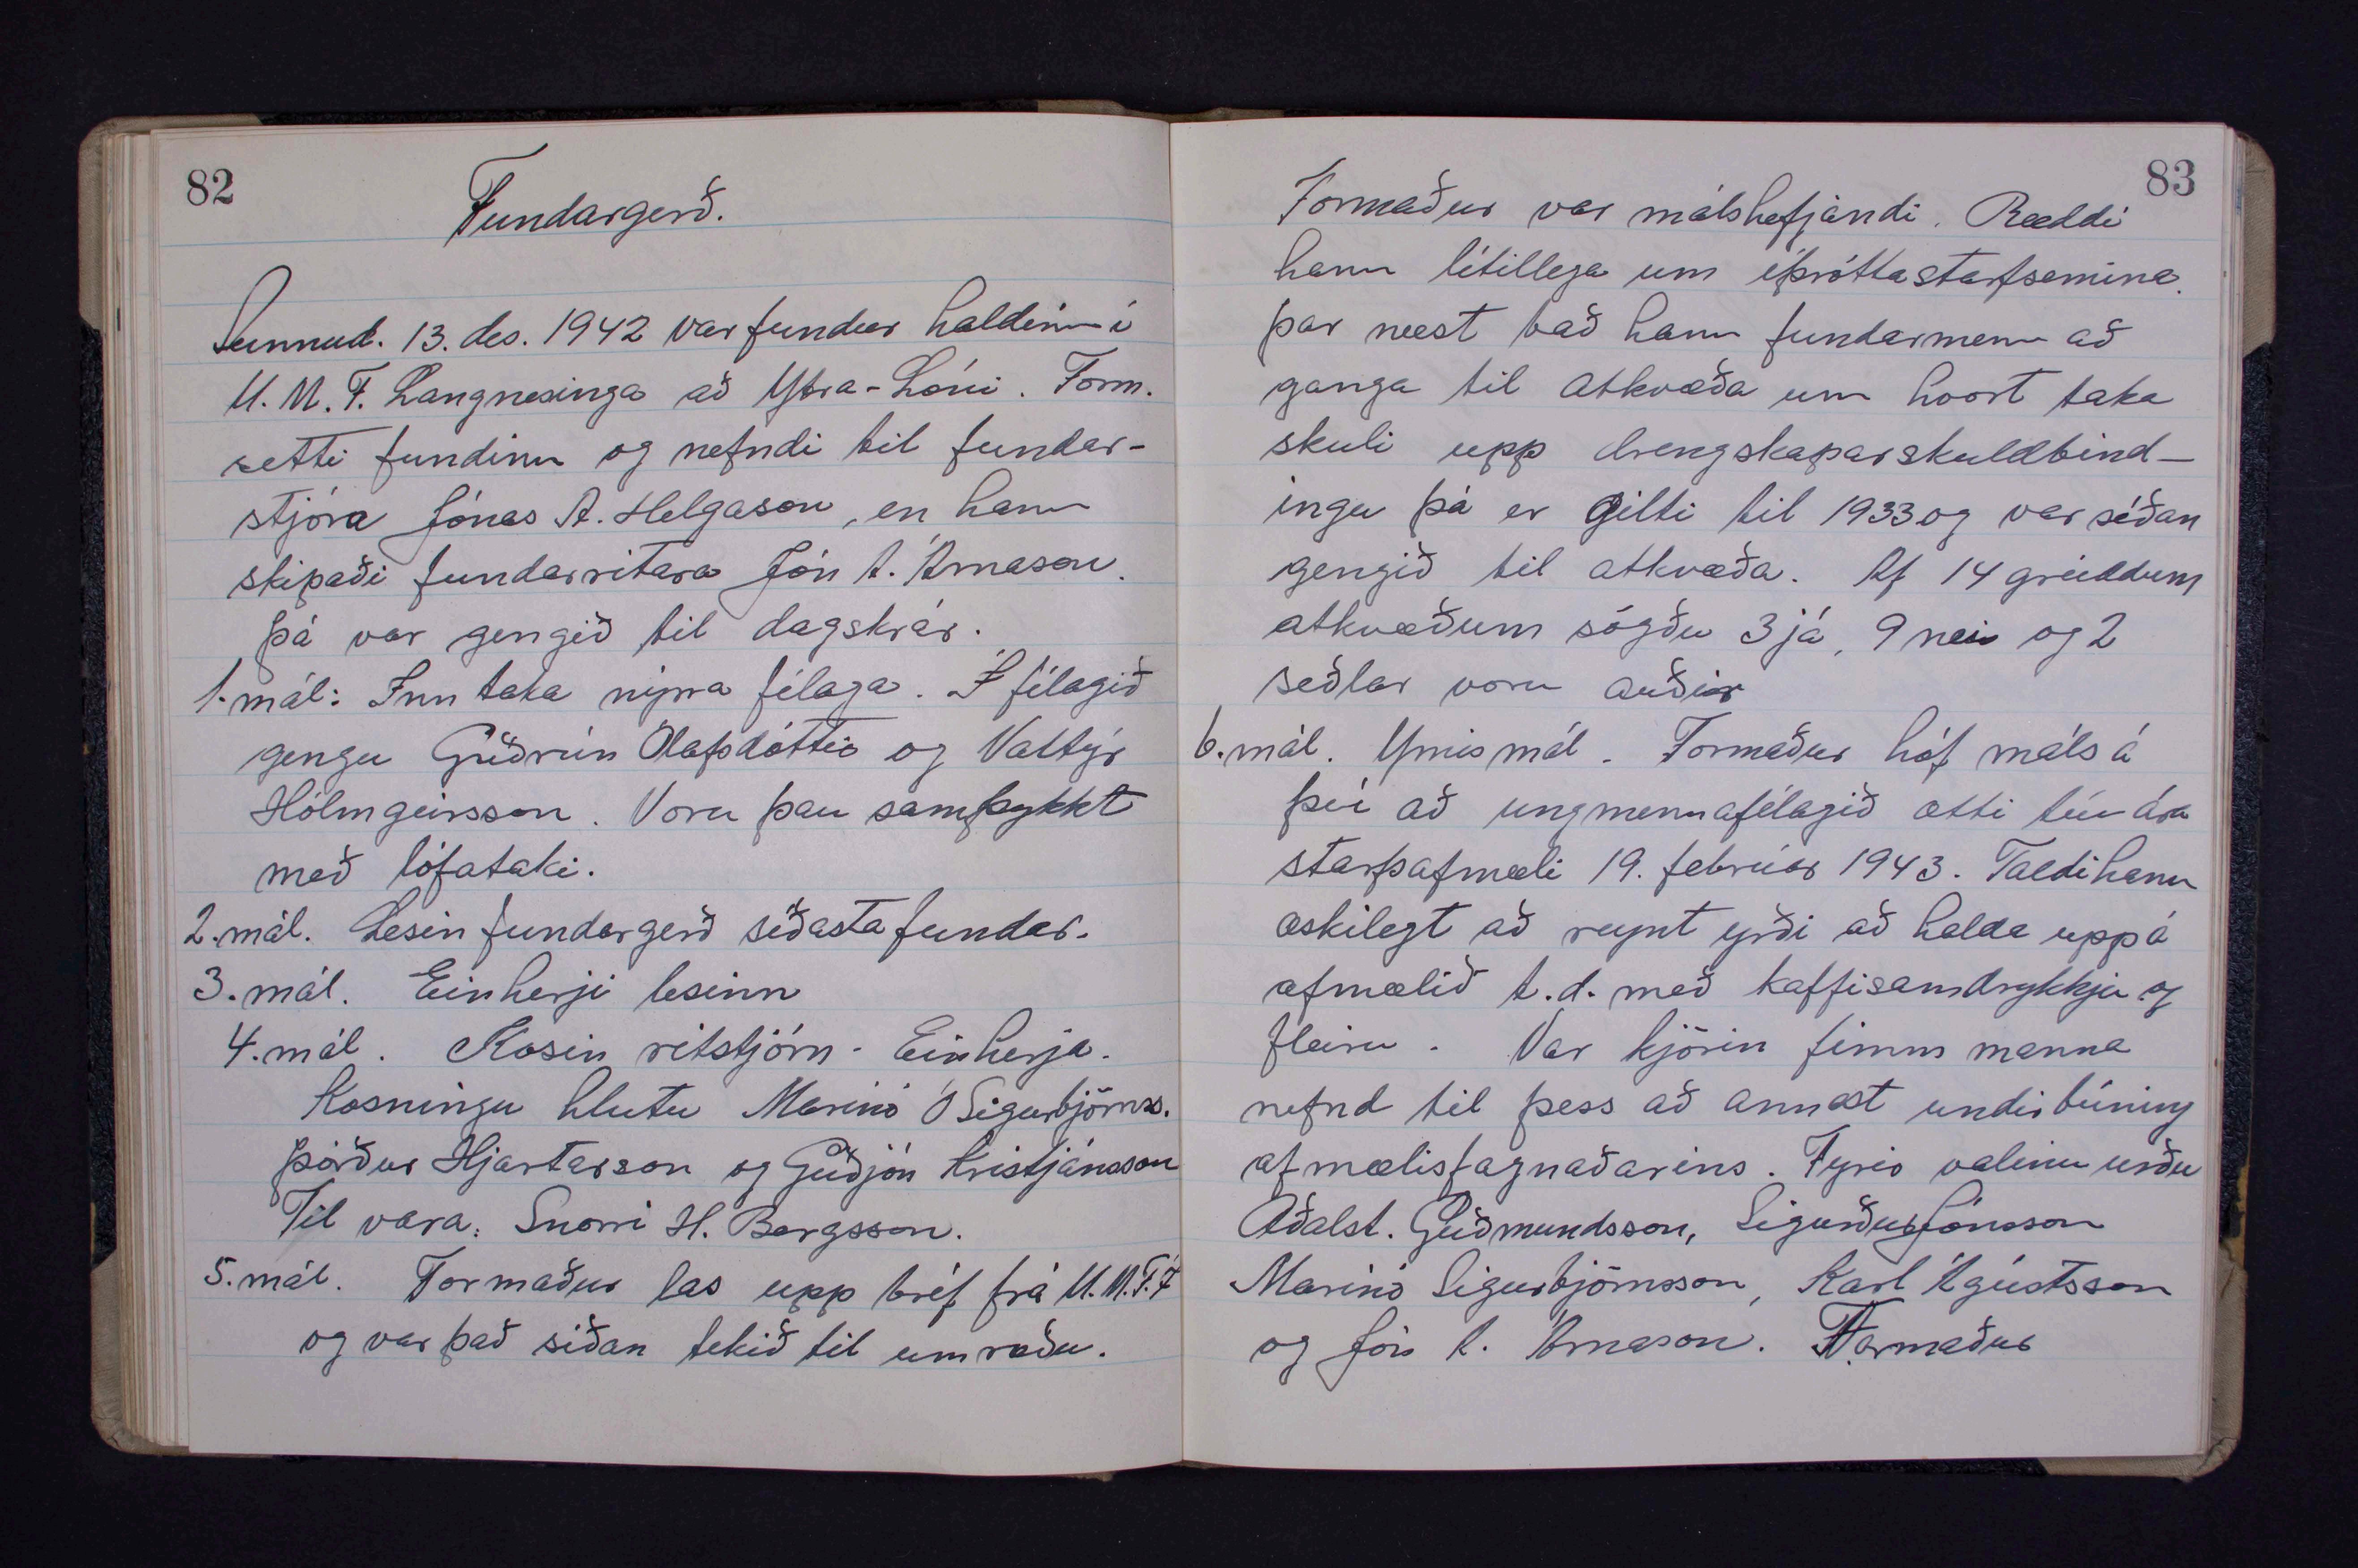 82
Fundargerð.
Sunnud. 13. des. 1942 var fundur haldinn í
U. M. F. Langnesinga að Ytra-Lóni. Form.
setti fundinn og nefndi til fundar-
stjóra Jónas A. Helgason, en hann
skipaði fundarritara Jón A. Árnason.
Þá var gengið til dagskrár.
1. mál: Inntaka nýrra félaga. Í félagið
gengu Guðrún Ólafsdóttir og Valtýr
Hólmgeirsson. Voru þau samþykkt
með lófataki.
2. mál. Lesin fundargerð síðasta fundar.
3. mál. Einherji lesinn
4. mál. Kosin ritstjórn - Einherja.
Kosningu hlutu Marinó Ó Sigurbjörnss.
Þórður Hjartarson og Guðjón Kristjánsson
Til vara: Snorri H. Bergsson.
5. mál. Formaður las upp bréf frá U.M.F.Í
og var það síðan tekið til umræðu.
83
Formaður var málshefjandi. Ræddi
hann lítillega um íþróttastarfsemina.
Þar næst bað hann fundarmenn að
ganga til atkvæða um hvort taka
skuli upp drengskaparskuldbind-
ingu þá er gilti til 1933 og var síðan
gengið til atkvæða. Af 14 greiddum
atkvæðum sögðu 3 já, 9 nei og 2
seðlar voru auðir
6. mál. Ýmis mál. Formaður hóf máls á
því að ungmennafélagið ætti tíu ára
starfsafmæli 19. febrúar 1943. Taldi hann
æskilegt að reynt yrði að halda upp á
afmælið t.d. með kaffisamdrykkju og
fleiru. Var kjörin fimm manna
nefnd til þess að annast undirbúning
afmælisfagnaðarins. Fyrir valinu urðu
Aðalst. Guðmundsson, Sigurður Jónsson
Marinó Sigurbjörnsson, Karl Ágústsson
og Jón A. Árnason. Formaður